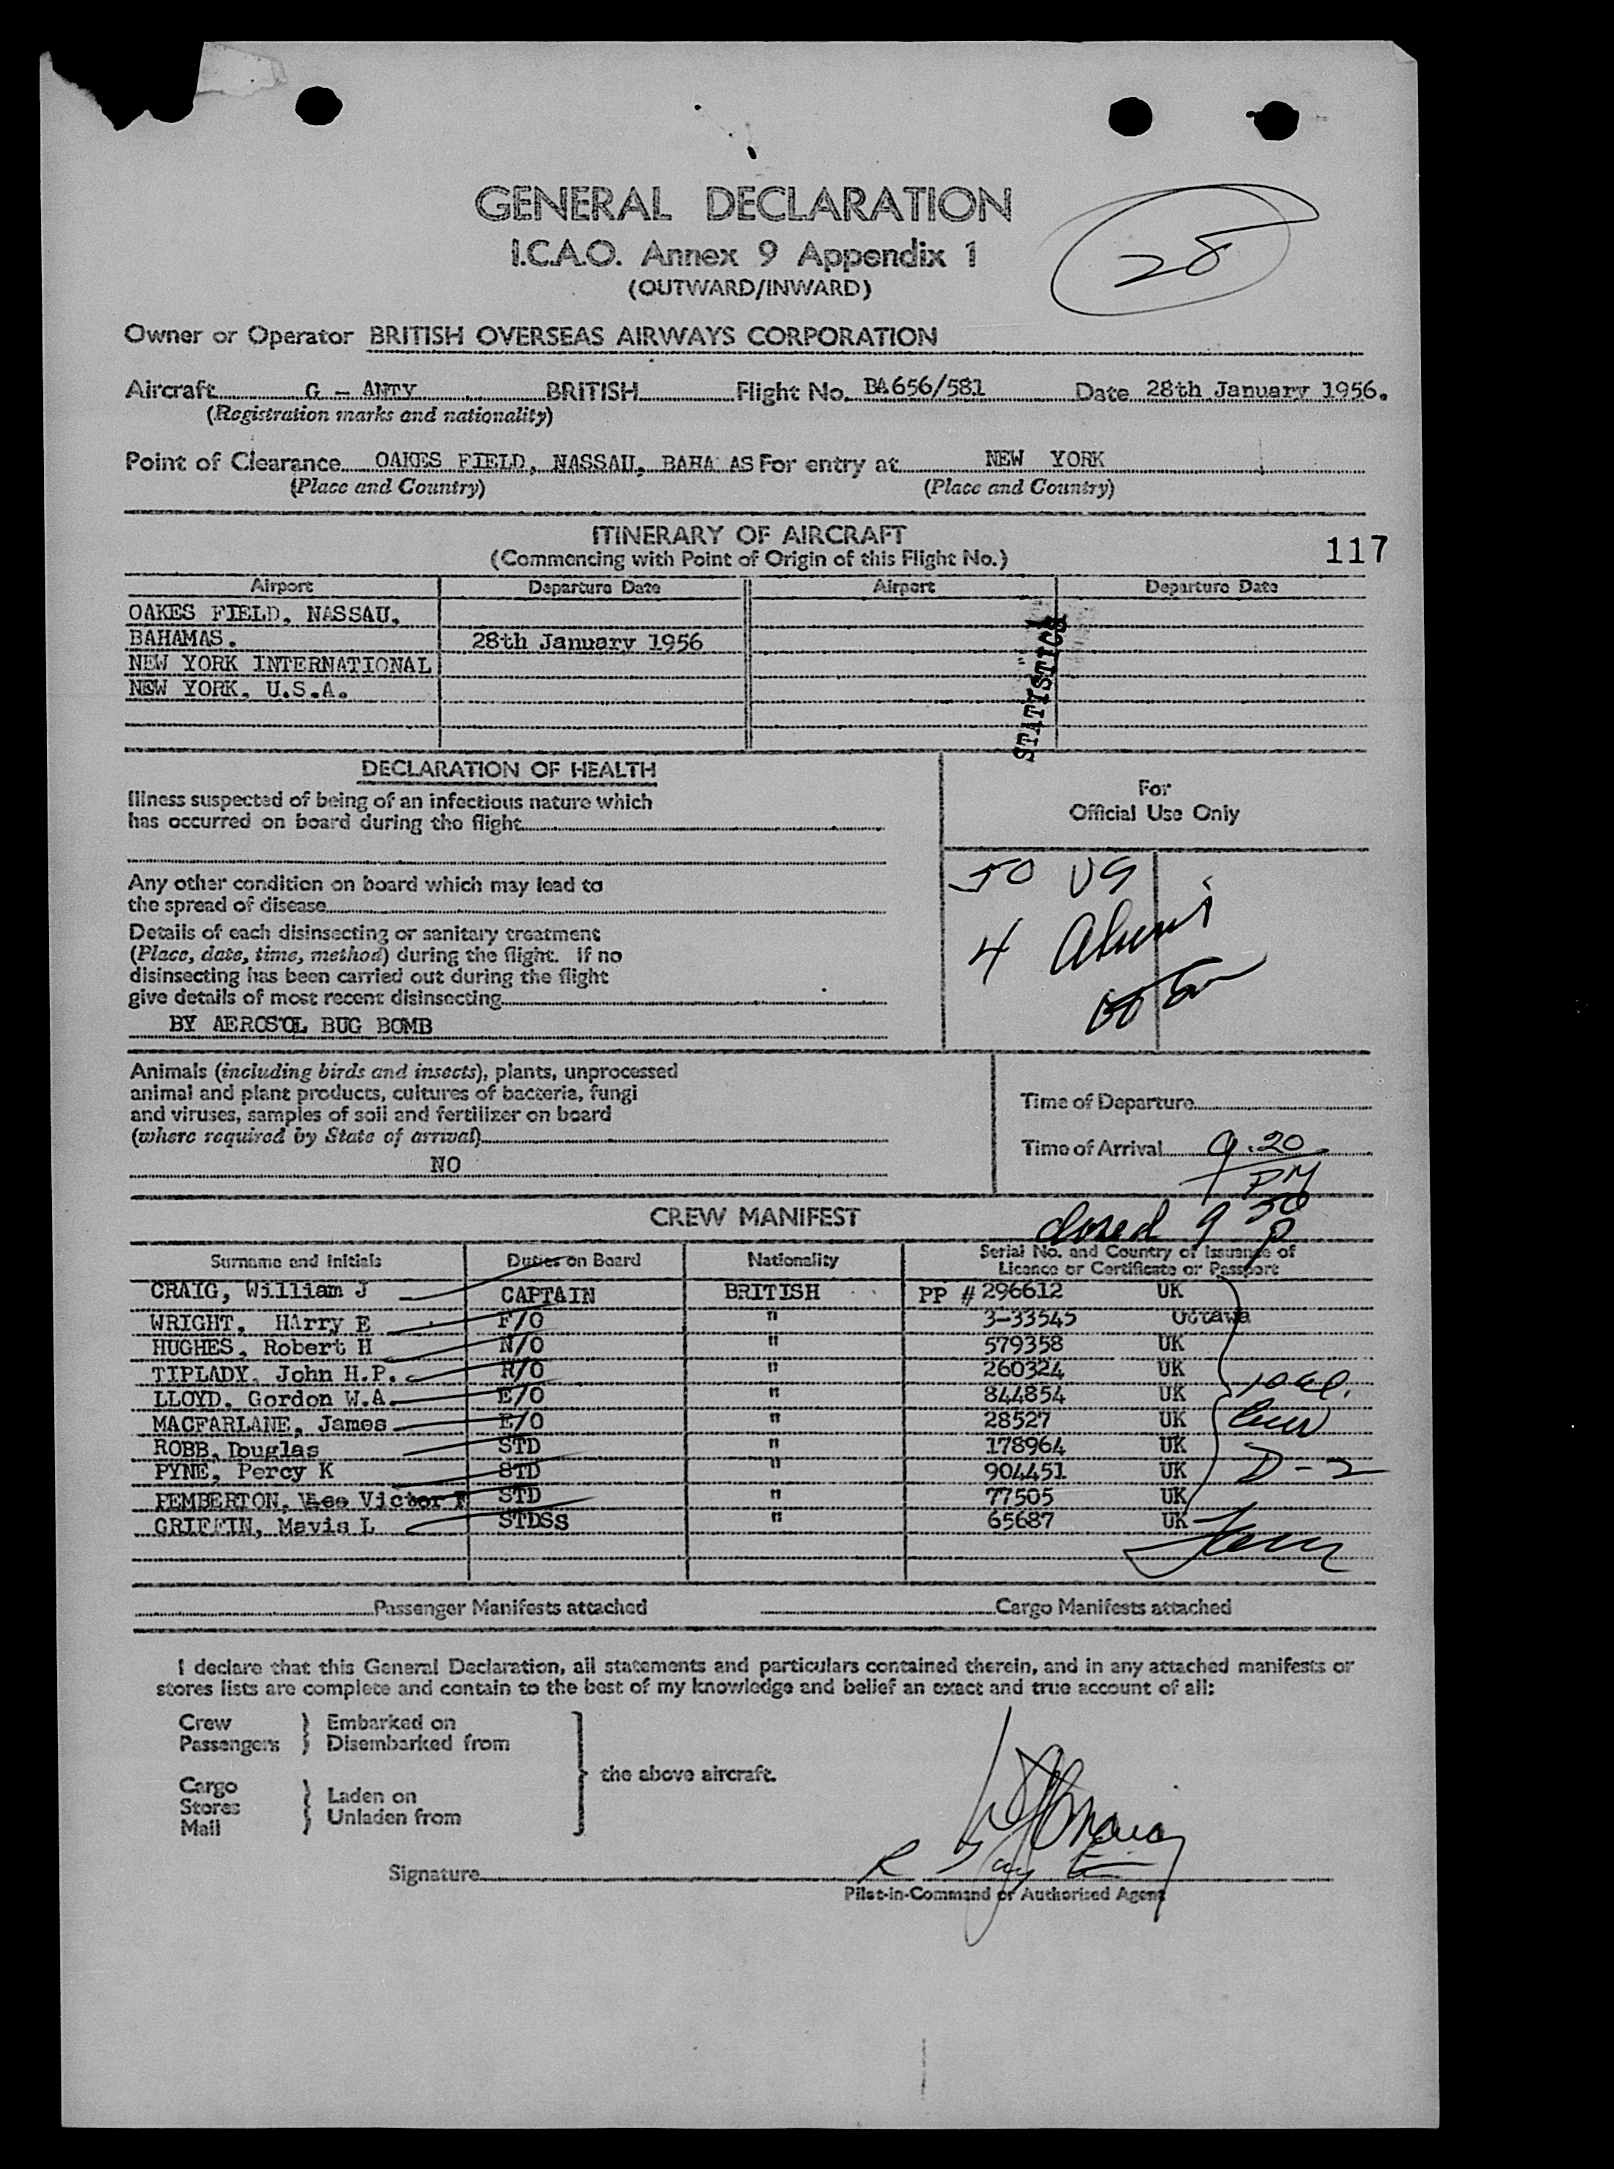 GENERAL DECLARATION
I.C.A.O. Annex 9 Appendix 1
(OUTWARD/INWARD)
28
Owner or Operator BRITISH OVERSEAS AIRWAYS CORPORATION
Aircraft G - ANTY BRITISH Flight No. BA656/581 Date 28th January 1956.
(Registration marks and nationality)
Point of Clearance OAKES FIELD, NASSAU, BAHA AS For entry at NEW YORK
(Place and Country) (Place and Country)
ITINERARY OF AIRCRAFT
(Commencing with Point of Origin of this Flight No.)
117
Airport Departure Date Airport Departure Date
OAKES FIELD, NASSAU,
BAHAMAS. 28th January 1956
NEW YORK INTERNATIONAL
NEW YORK, U.S.A.
STATISTICS
DECLARATION OF HEALTH
Illness suspected of being of an infectious nature which
has occurred on board during the flight
Any other condition on board which may lead to
the spread of disease
Details of each disinsecting or sanitary treatment
(Place, date, time, method) during the flight. If no
disinsecting has been carried out during the flight
give details of most recent disinsecting
BY AEROSOL BUG BOMB
For
Official Use Only
50 US
4 Aliens
Animals (including birds and insects), plants, unprocessed
animal and plant products, cultures of bacteria, fungi
and viruses, samples of soil and fertilizer on board
(where required by State of arrival)
NO
Time of Departure
Time of Arrival 9.20
PM
closed 9 50
P
CREW MANIFEST
Surname and Initials Duties on Board Nationality Serial No. and Country of Issuance of
Licence or Certificate or Passport
CRAIG, William J CAPTAIN BRITISH PP # 296612 UK
WRIGHT, HArry E F/O " 3-33545 Ottawa
HUGHES, Robert H N/O " 579358 UK
TIPLADY, John H.P. R/O " 260324 UK
LLOYD, Gordon W.A. E/O " 844854 UK
MACFARLANE, James E/O " 28527 UK
ROBB, Douglas STD " 178964 UK
PYNE, Percy K STD " 904451 UK
PEMBERTON, Victor F STD " 77505 UK
GRIFFIN, Mavis L STDSS " 65687 UK
10 al.
Crew
D-2
Passenger Manifests attached Cargo Manifests attached
I declare that this General Declaration, all statements and particulars contained therein, and in any attached manifests or
stores lists are complete and contain to the best of my knowledge and belief an exact and true account of all:
Crew Embarked on
Passengers Disembarked from
the above aircraft.
Cargo
Stores Laden on
Mail Unladen from
Signature
Pilot-in-Command or Authorised Agent